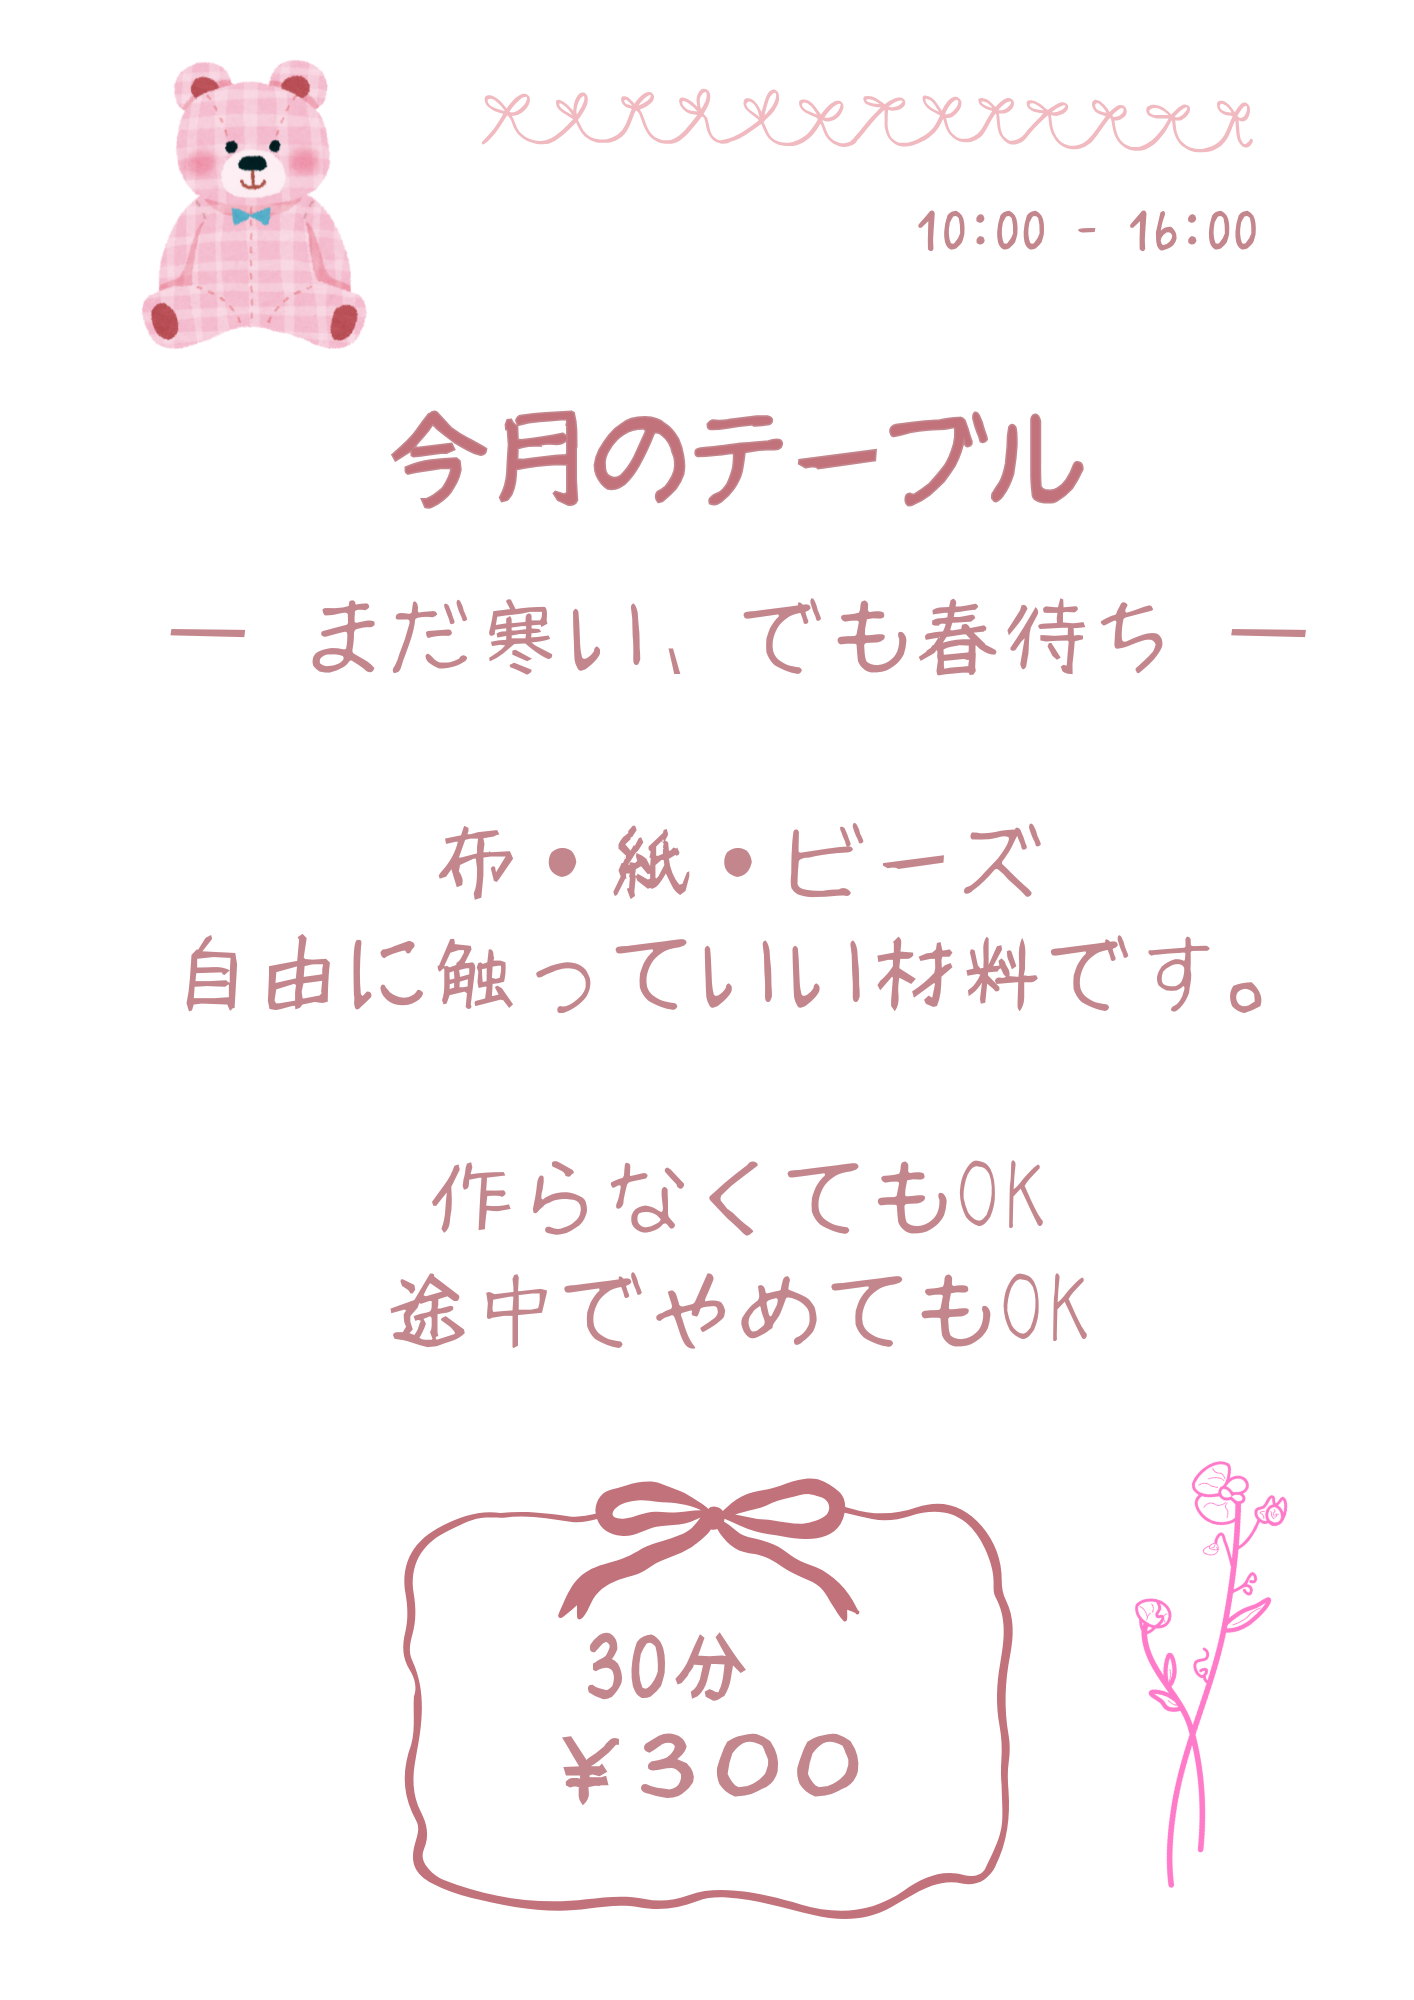 10:00 - 16:00
今月のテーブル
― まだ寒い、でも春待ち ―
布・紙・ビーズ
自由に触っていい材料です。
作らなくてもOK
途中でやめてもOK
30分
￥３００